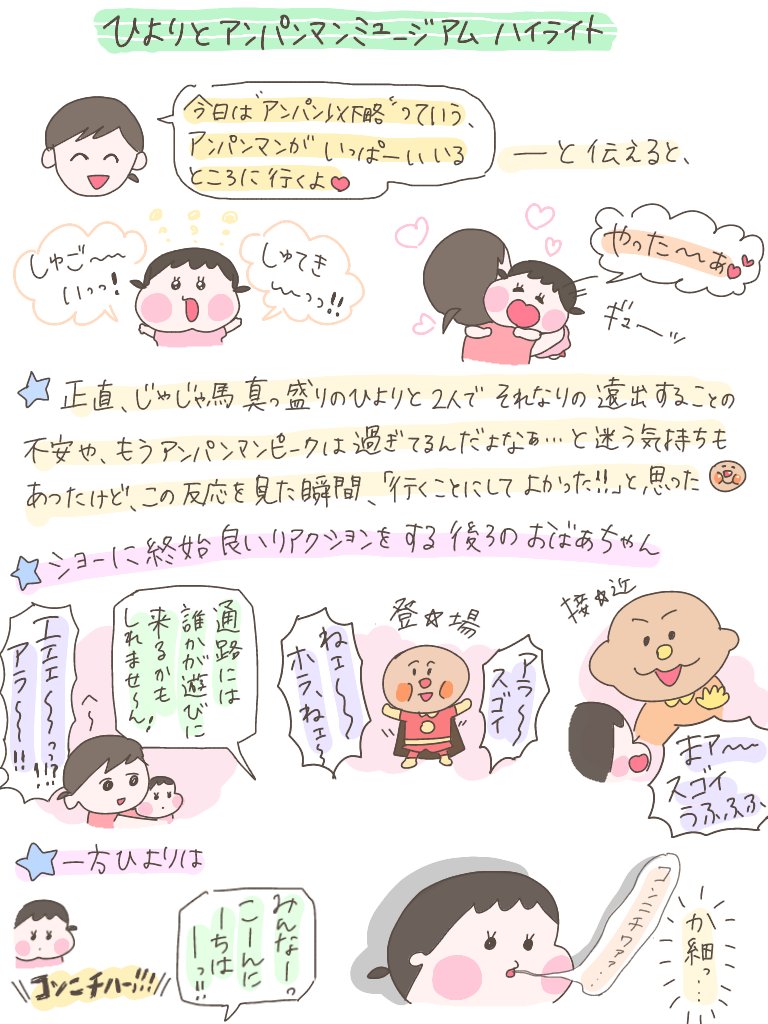 ひよりとアンパンマンミュージアム ハイライト
今日は"アンパン以下略"っていう、
アンパンマンが いっぱーいいる
ところに行くよ
――と伝えると、
しゅご〜〜
いっっ!
しゅてき
〜〜っっ!!
やった〜〜ぁ
ギューッ
正直、じゃじゃ馬真っ盛りのひよりと2人で それなりの遠出することの
不安や、もうアンパンマンピークは過ぎてるんだよなぁ…と迷う気持ちも
あったけど、この反応を見た瞬間、「行くことにして よかった!!」と思った
ショーに終始良いリアクションをする後ろのおばあちゃん
エエエ〜〜っっ!?
アラ〜〜!!
へ〜
通路には
誰かが遊びに
来るかも
しれませ〜ん!
ねェ〜〜
ホラ、ねェ〜
登☆場
アラ〜
スゴイ
接☆近
まァ〜〜
スゴイ
うふふふ、
一方ひよりは
コンニチハー!!!
みんなーっ
こーんに
ーちは
ーっ!!
コンニチワァァ…
か細っ…